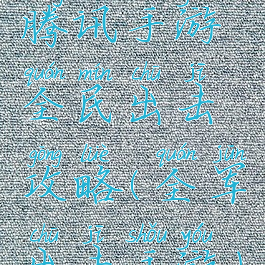 腾讯手游
quán mín chū jī
全民出击
gōng lüè quán jūn
攻略(全军
chū jī shǒu yóu
出击手游)